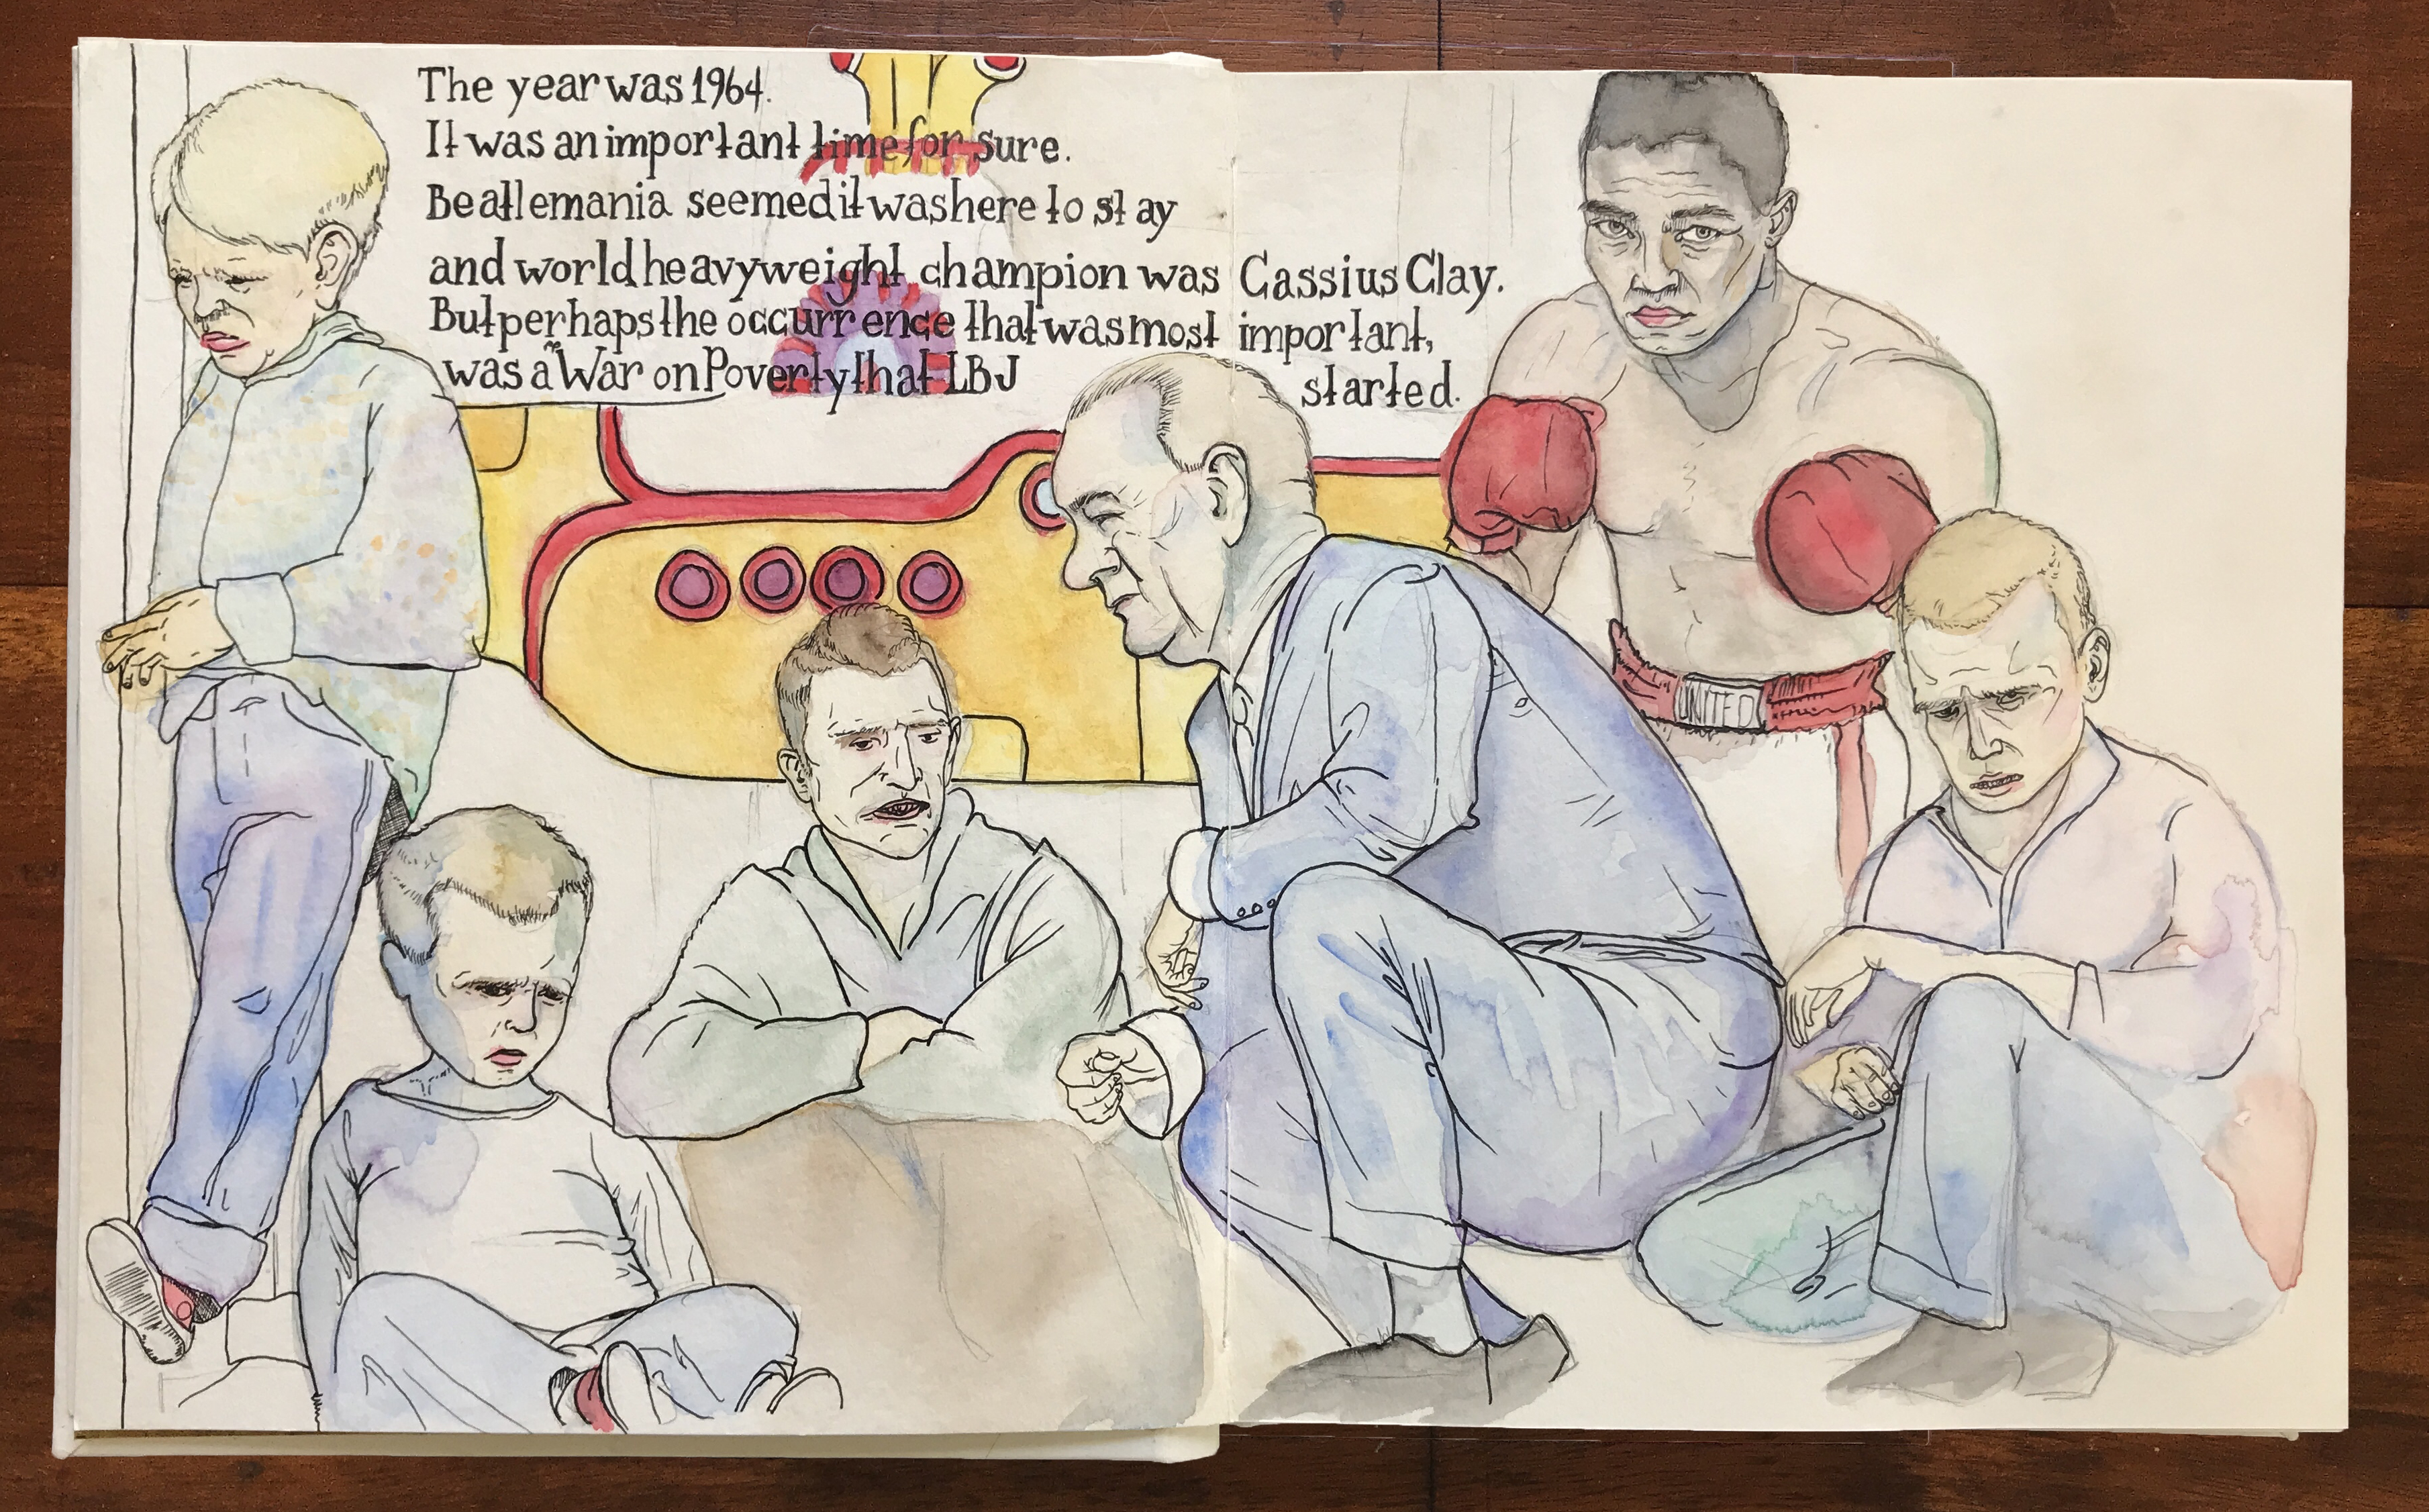 The year was 1964.
It was an important time for sure.
Beatlemania seemed it was here to stay
and world heavyweight champion was Cassius Clay.
But perhaps the occurrence that was most important,
was a the War on Poverty that LBJ started.
UNITED